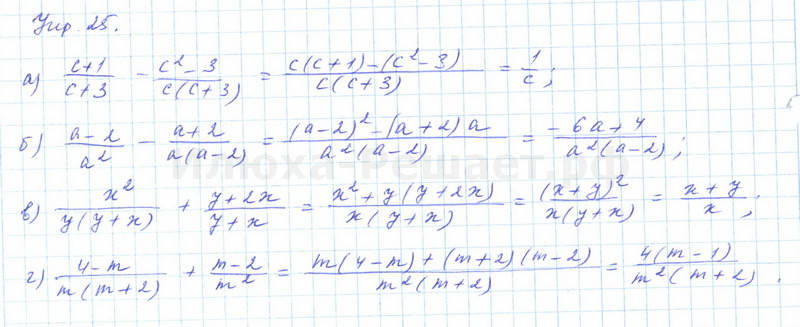 Упр. 25.
а) (c+1)/(c+3) - (c² - 3)/(c(c+3)) = (c(c+1) - (c² - 3))/(c(c+3)) = 1/c;
б) (a-2)/a² - (a+2)/(a(a-2)) = ((a-2)² - (a+2)a)/(a²(a-2)) = (-6a+4)/(a²(a-2));
в) x²/(y(y+x)) + (y+2x)/(y+x) = (x² + y(y+2x))/(x(y+x)) = (x+y)²/(x(y+x)) = (x+y)/x;
г) (4-m)/(m(m+2)) + (m-2)/m² = (m(4-m) + (m+2)(m-2))/(m²(m+2)) = 4(m-1)/(m²(m+2)).
Илюха-Решает.рф